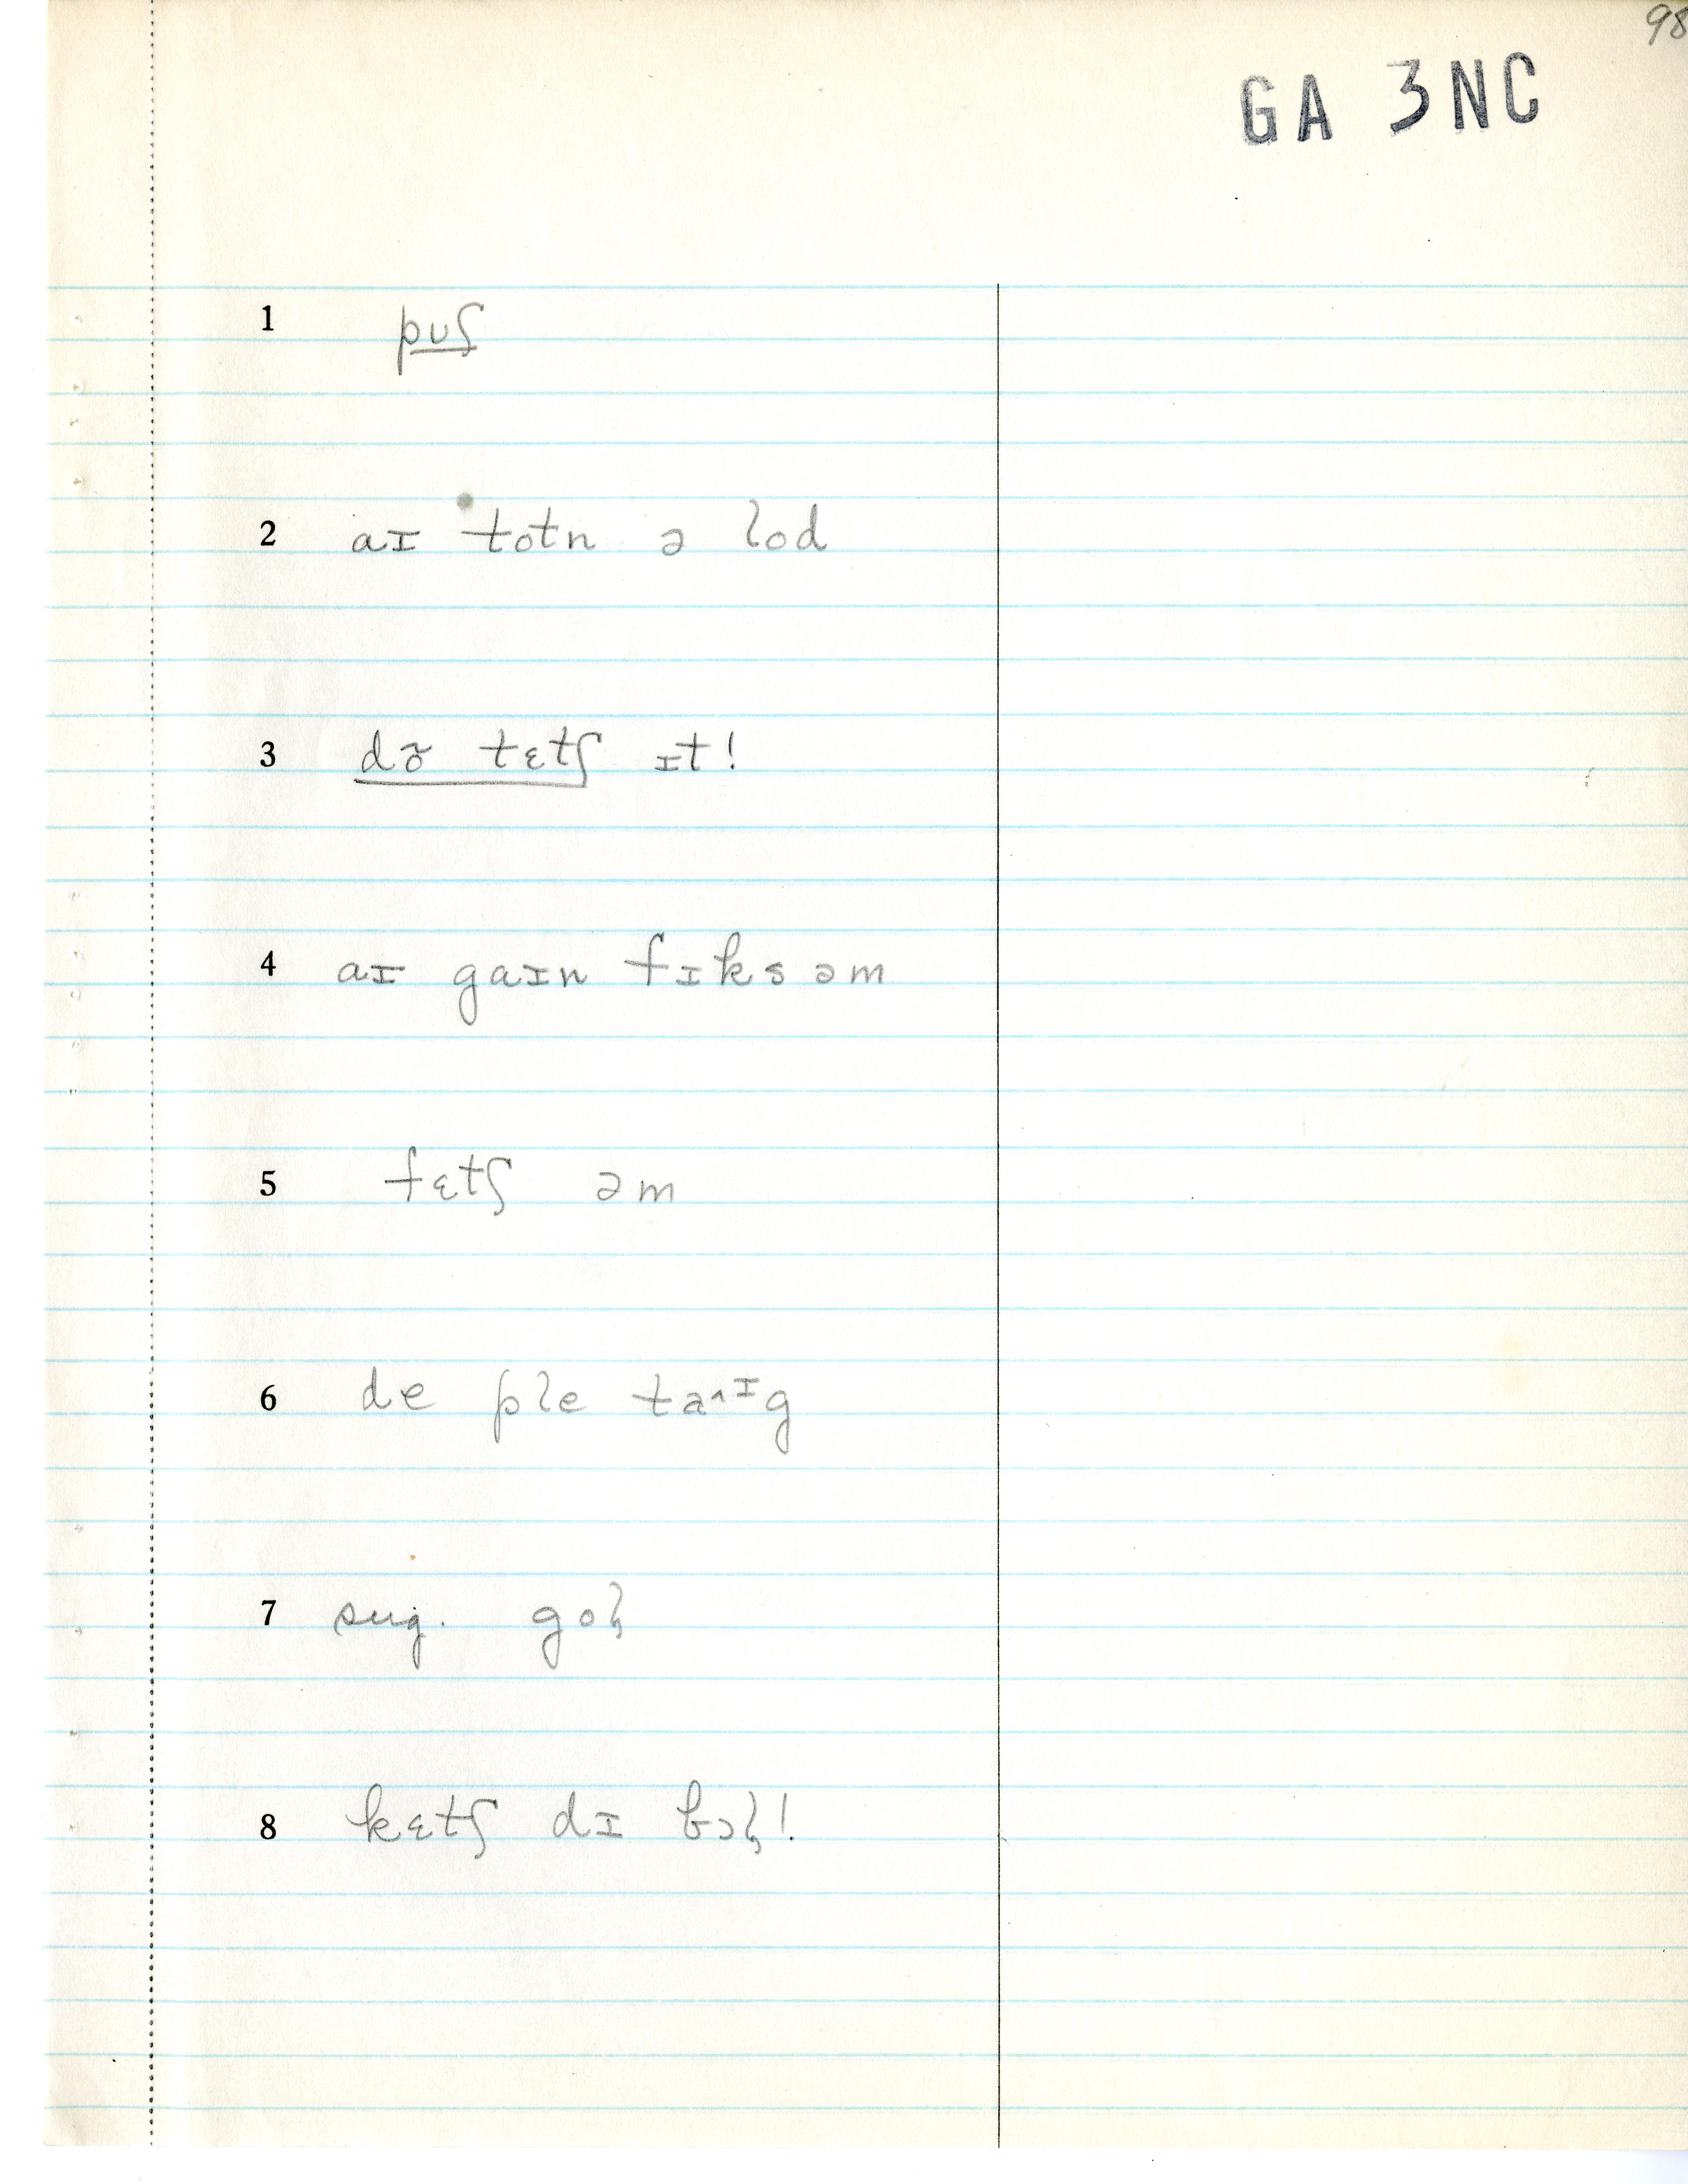 98
GA 3NC
1 pʊʃ
2 aɪ totn ə lod
3 dõ tɛtʃ ɪt!
4 aɪ gaɪn fɪks əm
5 fɛtʃ əm
6 de ple ta^ɪg
7 sug. gol̩
8 kɛtʃ dɪ bɔl̩!